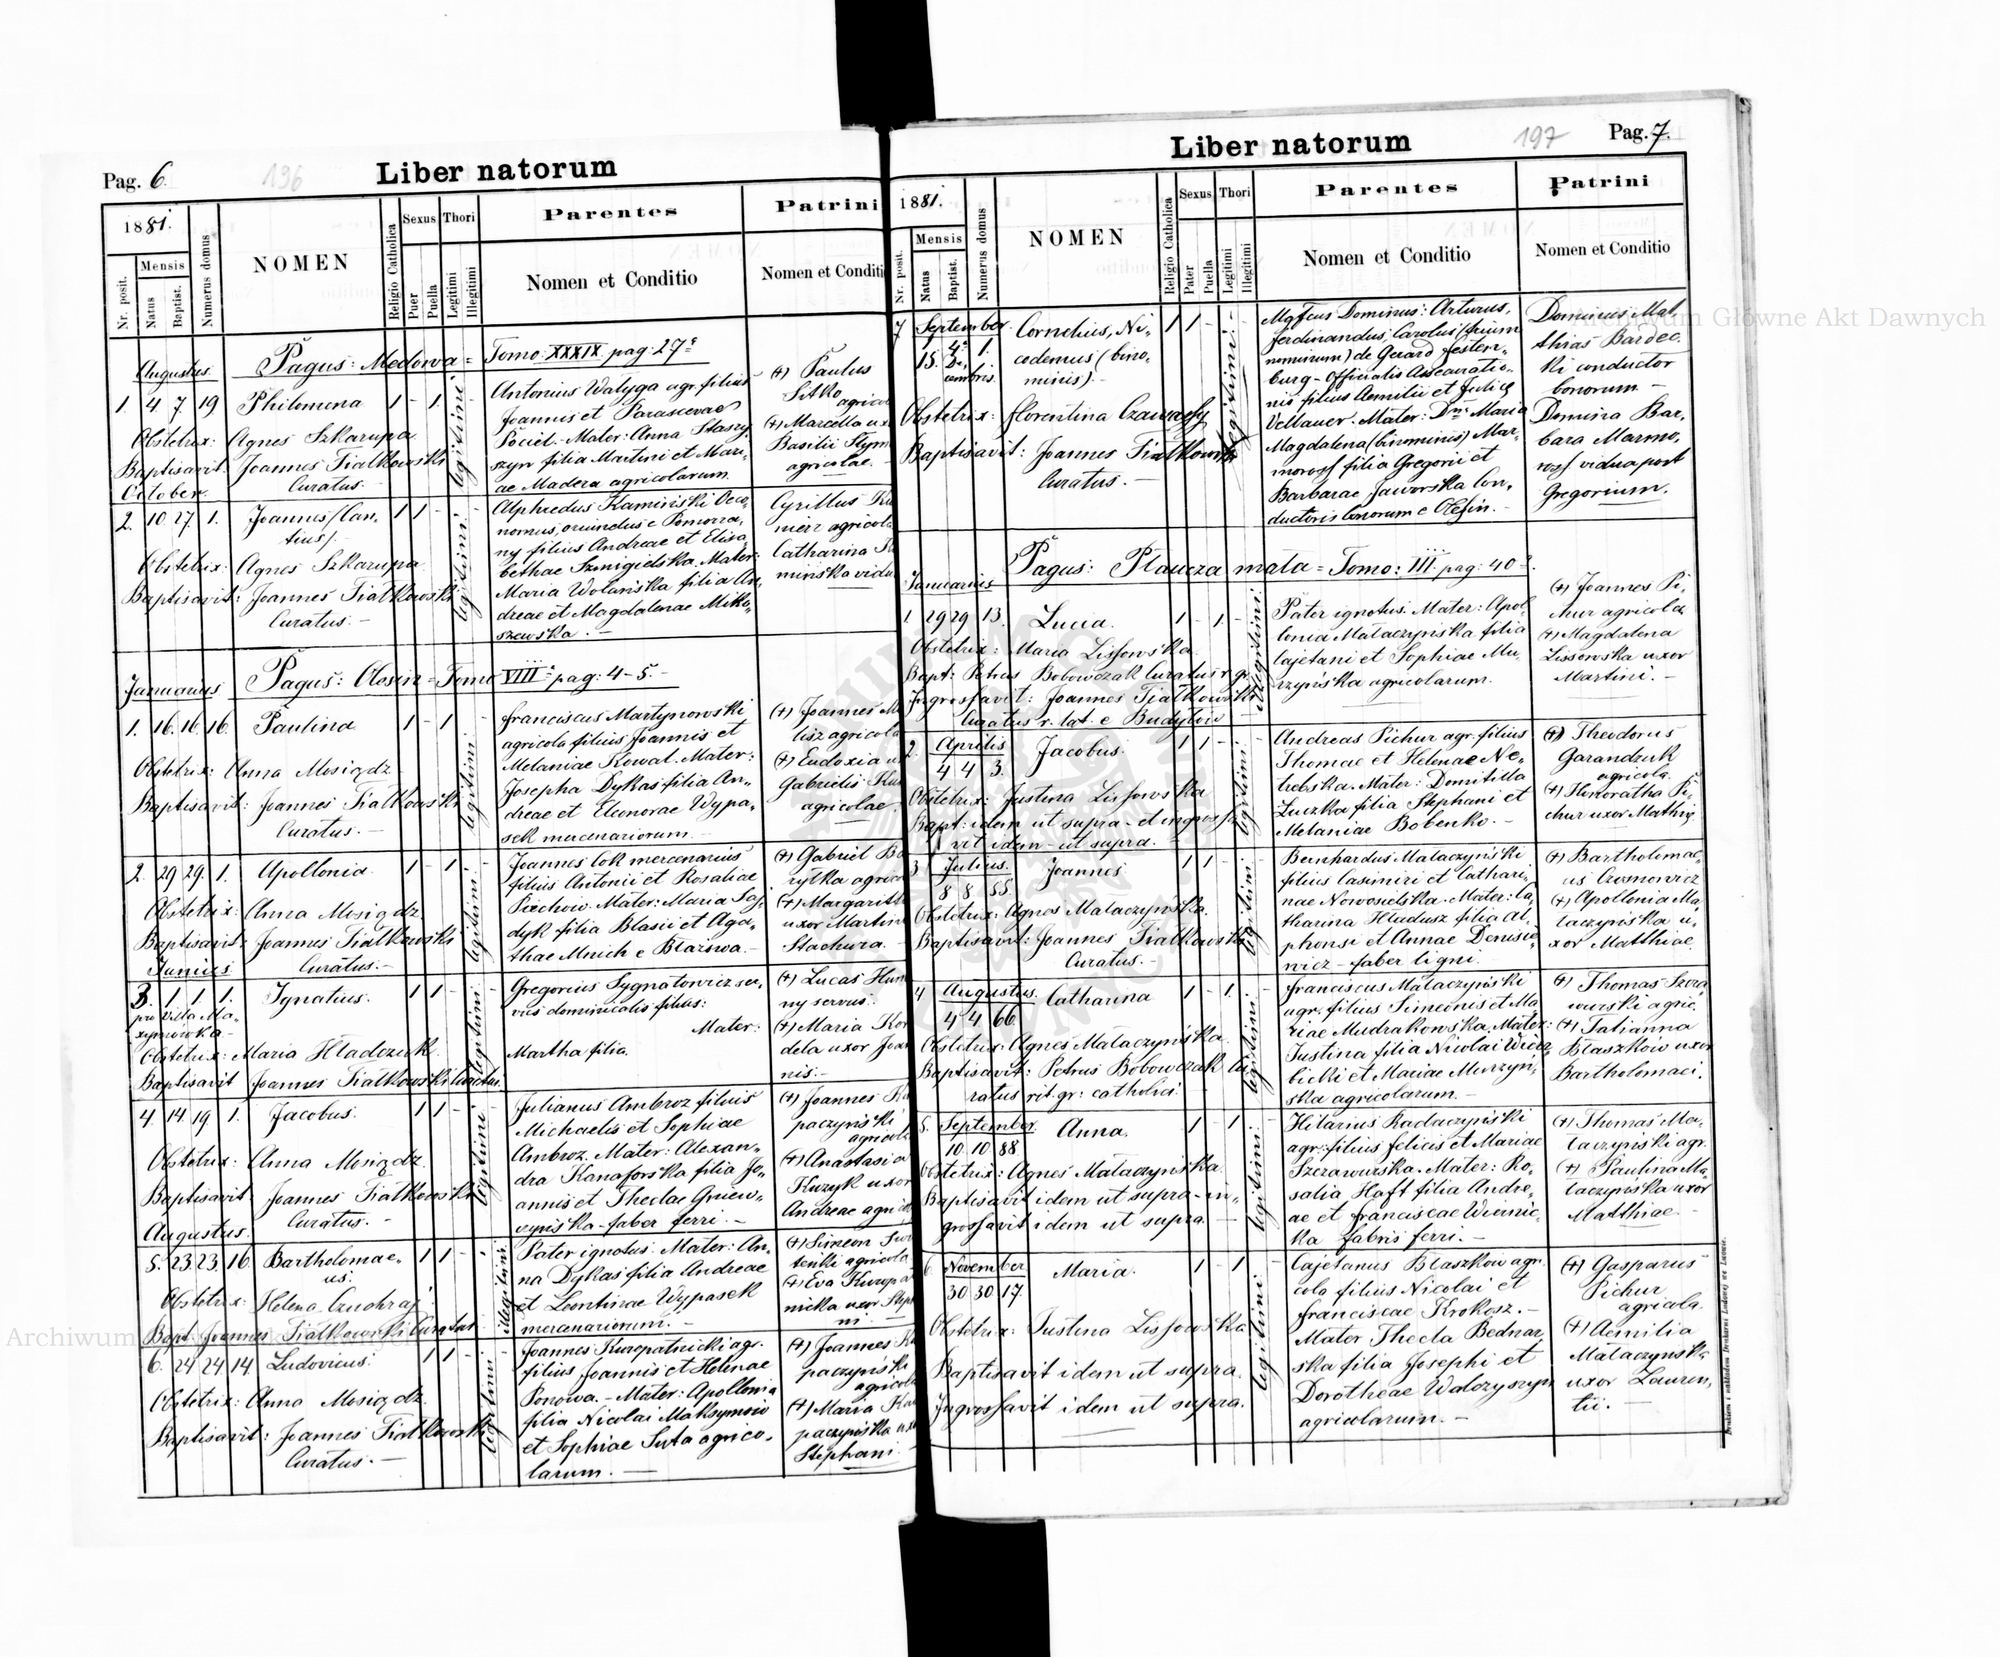 Pag. 6.
196
Liber natorum
1881.
Sexus
Thori
Parentes
Patrini
Nr. posit.
Mensis
Natus
Baptist.
Numerus domus
NOMEN
Religio Catholica
Puer
Puella
Legitimi
Illegitimi
Nomen et Conditio
Nomen et Conditi
Augustus
Pagus: Medowa = Tomo: XXXIX pag: 27
1. 4 7 19 Philomena 1 - 1 -
legitimi
Obstetrix: Agnes Szkarupa
Baptisavit: Joannes Fiałkowski
Curatus.
Antonius Wałyga agr. filius
Joannis et Parascevae
Pociel. Mater: Anna Staszy
szyn filia Martini et Mari-
ae Madera agricolarum.
(+) Paulus
Sitko
agricol
(+) Marcella ux
Basilii Slym
agricolae.
October.
2. 10 27 1. Joannes (Can-
tius). 1 1 -
legitimi
Obstetrix: Agnes Szkarupa
Baptisavit: Joannes Fiałkowski
Curatus. -
Alphredus Kamiński Oeco-
nomus, oriundus e Pomorza,
ny filius Andreae et Elisa,
bethae Szmigielska. Mater:
Maria Wolańska filia An,
dreae et Magdalenae Miko,
szewska. -
Cyrillus
merz agricola
Catharina
mińska vidu
Januarius
Pagus: Olesin = Tomo VIII pag: 4-5. -
1. 16. 16. 16. Paulina 1 - 1 -
legitimi
Obstetrix: Anna Mosiądz
Baptisavit: Joannes Fiałkowski
Curatus. -
Franciscus Martynowski
agricola filius Joannis et
Melaniae Kowal. Mater:
Josepha Dykas filia An-
dreae et Eleonorae Wypa,
sek mercenariorum. -
(+) Joannes
lisz agricola
(+) Eudoxia u
Gabrielis
agricolae
2. 29 29. 1. Apollonia 1 - 1 -
legitimi
Obstetrix: Anna Mosiądz
Baptisavit: Joannes Fiałkowski
Curatus. -
Joannes Cok mercenarius
filius Antonii et Rosaliae
Piechow. Mater: Maria Saj,
dyk filia Blasii et Aga,
thae Mnich e Błażowa. -
(+) Gabriel
rytka agrico
(+) Margarit
uxor Martin
Stachura. -
Junius
3. 1. 1. 1. Ignatius. 1 1 -
legitimi
pro villa Ma-
xymówka -
Obstetrix: Maria Hladczuk.
Baptisavit Joannes Fiałkowski Curatus.
Gregorius Sygnatowicz ser-
vus dominicalis filius:
Mater:
Martha filia.
(+) Lucas
ny servus.
(+) Maria Kor
dela uxor Joan
nis. -
4. 14. 19 1. Jacobus. 1 1 -
legitimi
Obstetrix: Anna Mosiądz.
Baptisavit Joannes Fiałkowski
Curatus. -
Julianus Ambroz filius
Michaelis et Sophiae
Ambroz. Mater: Alexan,
dra Kanaforska filia Jo,
annis et Theclae Gniew-
czyńska - faber ferri. -
(+) Joannes
paczyński
agricola
(+) Anastasia
Kuzyk uxor
Andreae agri
Augustus.
5. 23 23 16 Bartholomae,
us. 1 1 -
illegitimi
Obstetrix: Helena Czuchraj
Bapt. Joannes Fiałkowski Curatus
Pater ignotus. Mater: An,
na Dykas filia Andreae
et Leontinae Wypasek
mercenariorum. -
(+) Simeon
tenki agricola
(+) Eva Kuropa
nicka uxor Step
ni
6. 24 24 14. Ludovicus. 1 1 -
legitimi
Obstetrix: Anna Mosiądz
Baptisavit: Joannes Fiałkowski
Curatus. -
Joannes Kuropatnicki agr.
filius Joannis et Helenae
Ponowa. - Mater: Apollonia
filia Nicolai Maksymow
et Sophiae Suta agrico-
larum. -
(+) Joannes
paczyński
agricola
(+) Maria
paczyńska ux
Stephani
Liber natorum
197
Pag. 7.
1881.
Sexus
Thori
Parentes
Patrini
Nr. posit.
Mensis
Natus
Baptist.
Numerus domus
NOMEN
Religio Catholica
Puer
Puella
Legitimi
Illegitimi
Nomen et Conditio
Nomen et Conditio
7 September. Cornelius, Ni- 1 1 - -
15. 4 De-
cembris. 1. codemus (bino-
minis). -
legitimi
Obstetrix: Florentina
Baptisavit: Joannes Fiałkowski
Curatus. -
Mgfcus Dominus: Arturus,
Ferdinandus, Carolus (trium
nominum) de Gerard Festen,
burg - Officialis Assecuratio-
nis filius Aemilii et Juliae
Vellauer. Mater: Dna Maria
Magdalena (binominis) Mar-
morosz filia Gregorii et
Barbarae Jaworska Con,
ductoris bonorum e Olesin. -
Dominus Mat
thias Bardec,
ki conductor
bonorum -
Domina Bar,
bara Marmo,
rosz vidua post
Gregorium.
Pagus: Płaucza mała = Tomo: III pag: 40
Januarius
1. 29 29 13. Lucia. 1 - 1 -
illegitimi
Obstetrix: Maria Lissowska
Bapt: Petrus Bobowczak Curatus r. gr.
Ingrossavit: Joannes Fiałkowski
Curatus r. lat. e Budyłów
Pater ignotus. Mater: Apol-
lonia Małaczyńska filia
Cajetani et Sophiae Mu,
rzyńska agricolarum.
(+) Joannes Pi-
chur agricola
(+) Magdalena
Lissowska uxor
Martini. -
2. Aprilis Jacobus. 1 1 - -
4 4 3.
legitimi
Obstetrix: Justina Lissowska
Bapt: idem ut supra - et ingrossa
vit idem - ut supra. -
Andreas Pichur agr. filius
Thomae et Helenae Ne-
trebska. Mater: Domitilla
Łuczka filia Stephani et
Melaniae Bobenko. -
(+) Theodorus
Garandzuk
agricola.
(+) Honoratha Pi-
chur uxor Mathiae
3 Julius. Joannes 1 1 - -
8 8. 55.
legitimi
Obstetrix: Agnes Małaczyńska.
Baptisavit: Joannes Fiałkowski
Curatus. -
Bernhardus Małaczyński
filius Casimiri et Cathari-
nae Nowosielska. Mater: Ca,
tharina Hładusz filia Al,
phonsi et Annae Denisie,
wicz - faber ligni.
(+) Bartholomae,
us Czosnowicz
(+) Apollonia Ma,
łaczyńska u,
xor Matthiae.
4 Augustus. Catharina 1 - 1 -
4 4 66.
legitimi
Obstetrix: Agnes Małaczyńska.
Baptisavit: Petrus Bobowczak Cu
ratus rit. gr: catholici.
Franciscus Małaczyński
agr. filius Simeonis et Ma,
riae Mudrakowska. Mater:
Justina filia Nicolai Wierz,
bicki et Mariae Murzyń,
ska agricolarum. -
(+) Thomas Szcza
wurski agric.
(+) Tatianna
Błaszków uxor
Bartholomaei.
5. September. Anna. 1 - 1 -
10. 10 88
legitimi
Obstetrix: Agnes Małaczyńska.
Baptisavit idem ut supra - in,
grossavit idem ut supra. -
Hilarius Radaczyński
agr. filius Felicis et Mariae
Szczawurska. Mater: Ro,
salia Haft filia Andre,
ae et Franciscae Wiernic,
ka fabris ferri. -
(+) Thomas Ma,
łaczyński agr.
(+) Paulina Ma
łaczyńska uxor
Matthiae. -
6. November Maria. 1 - 1 -
30 30 17.
legitimi
Obstetrix: Justina Lissowska
Baptisavit idem ut supra.
Ingrossavit idem ut supra.
Cajetanus Błaszków agri
cola filius Nicolai et
Franciscae Krokosz. -
Mater Thecla Bednar,
ska filia Josephi et
Dorotheae Walczyszyn
agricolarum. -
(+) Gasparus
Pichur
agricola.
(+) Aemilia
Małaczyńska
uxor Lauren,
tii. -
Drukiem i nakładem Drukarni Ludowej we Lwowie.
Archiwum Główne Akt Dawnych
Archiwum